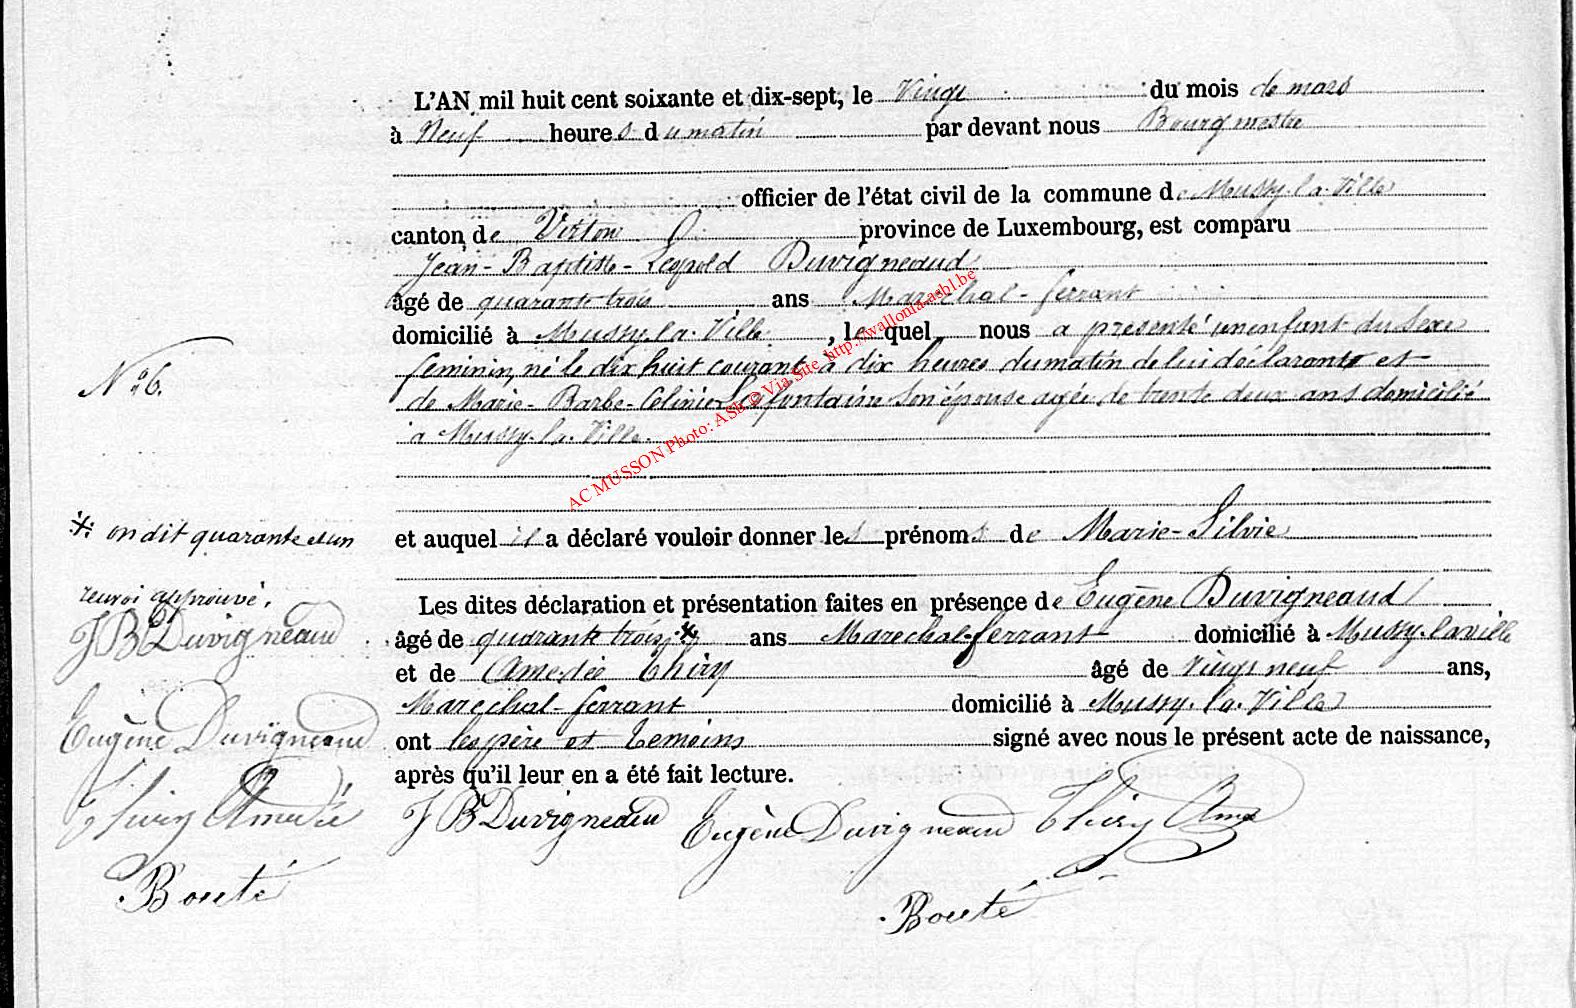 L'AN mil huit cent soixante et dix-sept, le Vingt du mois de mars
à Neuf heures du matin par devant nous Bourgmestre
officier de l'état civil de la commune de Mussy-la-Ville
canton de Virton province de Luxembourg, est comparu
Jean-Baptiste-Léopold Duvigneaud
âgé de quarante trois ans Marechal-ferrant
domicilié à Mussy-la-Ville, lequel nous a présenté un enfant du sexe
feminin, né le dix huit courant à dix heures du matin de lui déclarant et
de Marie-Barbe-Celinie Lafontaine son épouse agée de trente deux ans domicilié
à Mussy-la-Ville.
N° 6.
et auquel il a déclaré vouloir donner les prénoms de Marie-Silvie
Les dites déclaration et présentation faites en présence de Eugène Duvigneaud
âgé de quarante trois * ans Marechal-ferrant domicilié à Mussy-la ville
et de Amédée Thiry âgé de vingt neuf ans,
Marechal-ferrant domicilié à Mussy-la-Ville
ont les père et temoins signé avec nous le présent acte de naissance,
après qu'il leur en a été fait lecture.
J B Duvigneaud Eugène Duvigneaud Thiry Ame
Bouté
* on dit quarante et un
renvoi approuvé.
J B Duvigneaud
Eugène Duvigneaud
Thiry Amédée
Bouté
AC MUSSON Photo: ASb © Via Site http://wallonia-asbl.be